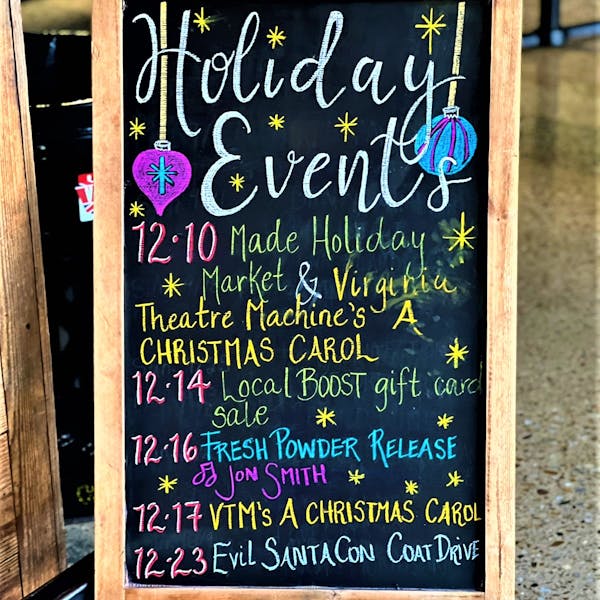 Holiday
Events
12·10 Made Holiday
Market & Virginia
Theatre Machine's A
CHRISTMAS CAROL
12·14 Local BOOST gift card
sale
12·16 FRESH POWDER RELEASE
♫ JON SMITH
12·17 VTM's A CHRISTMAS CAROL
12·23 EVIL SANTACON COAT DRIVE